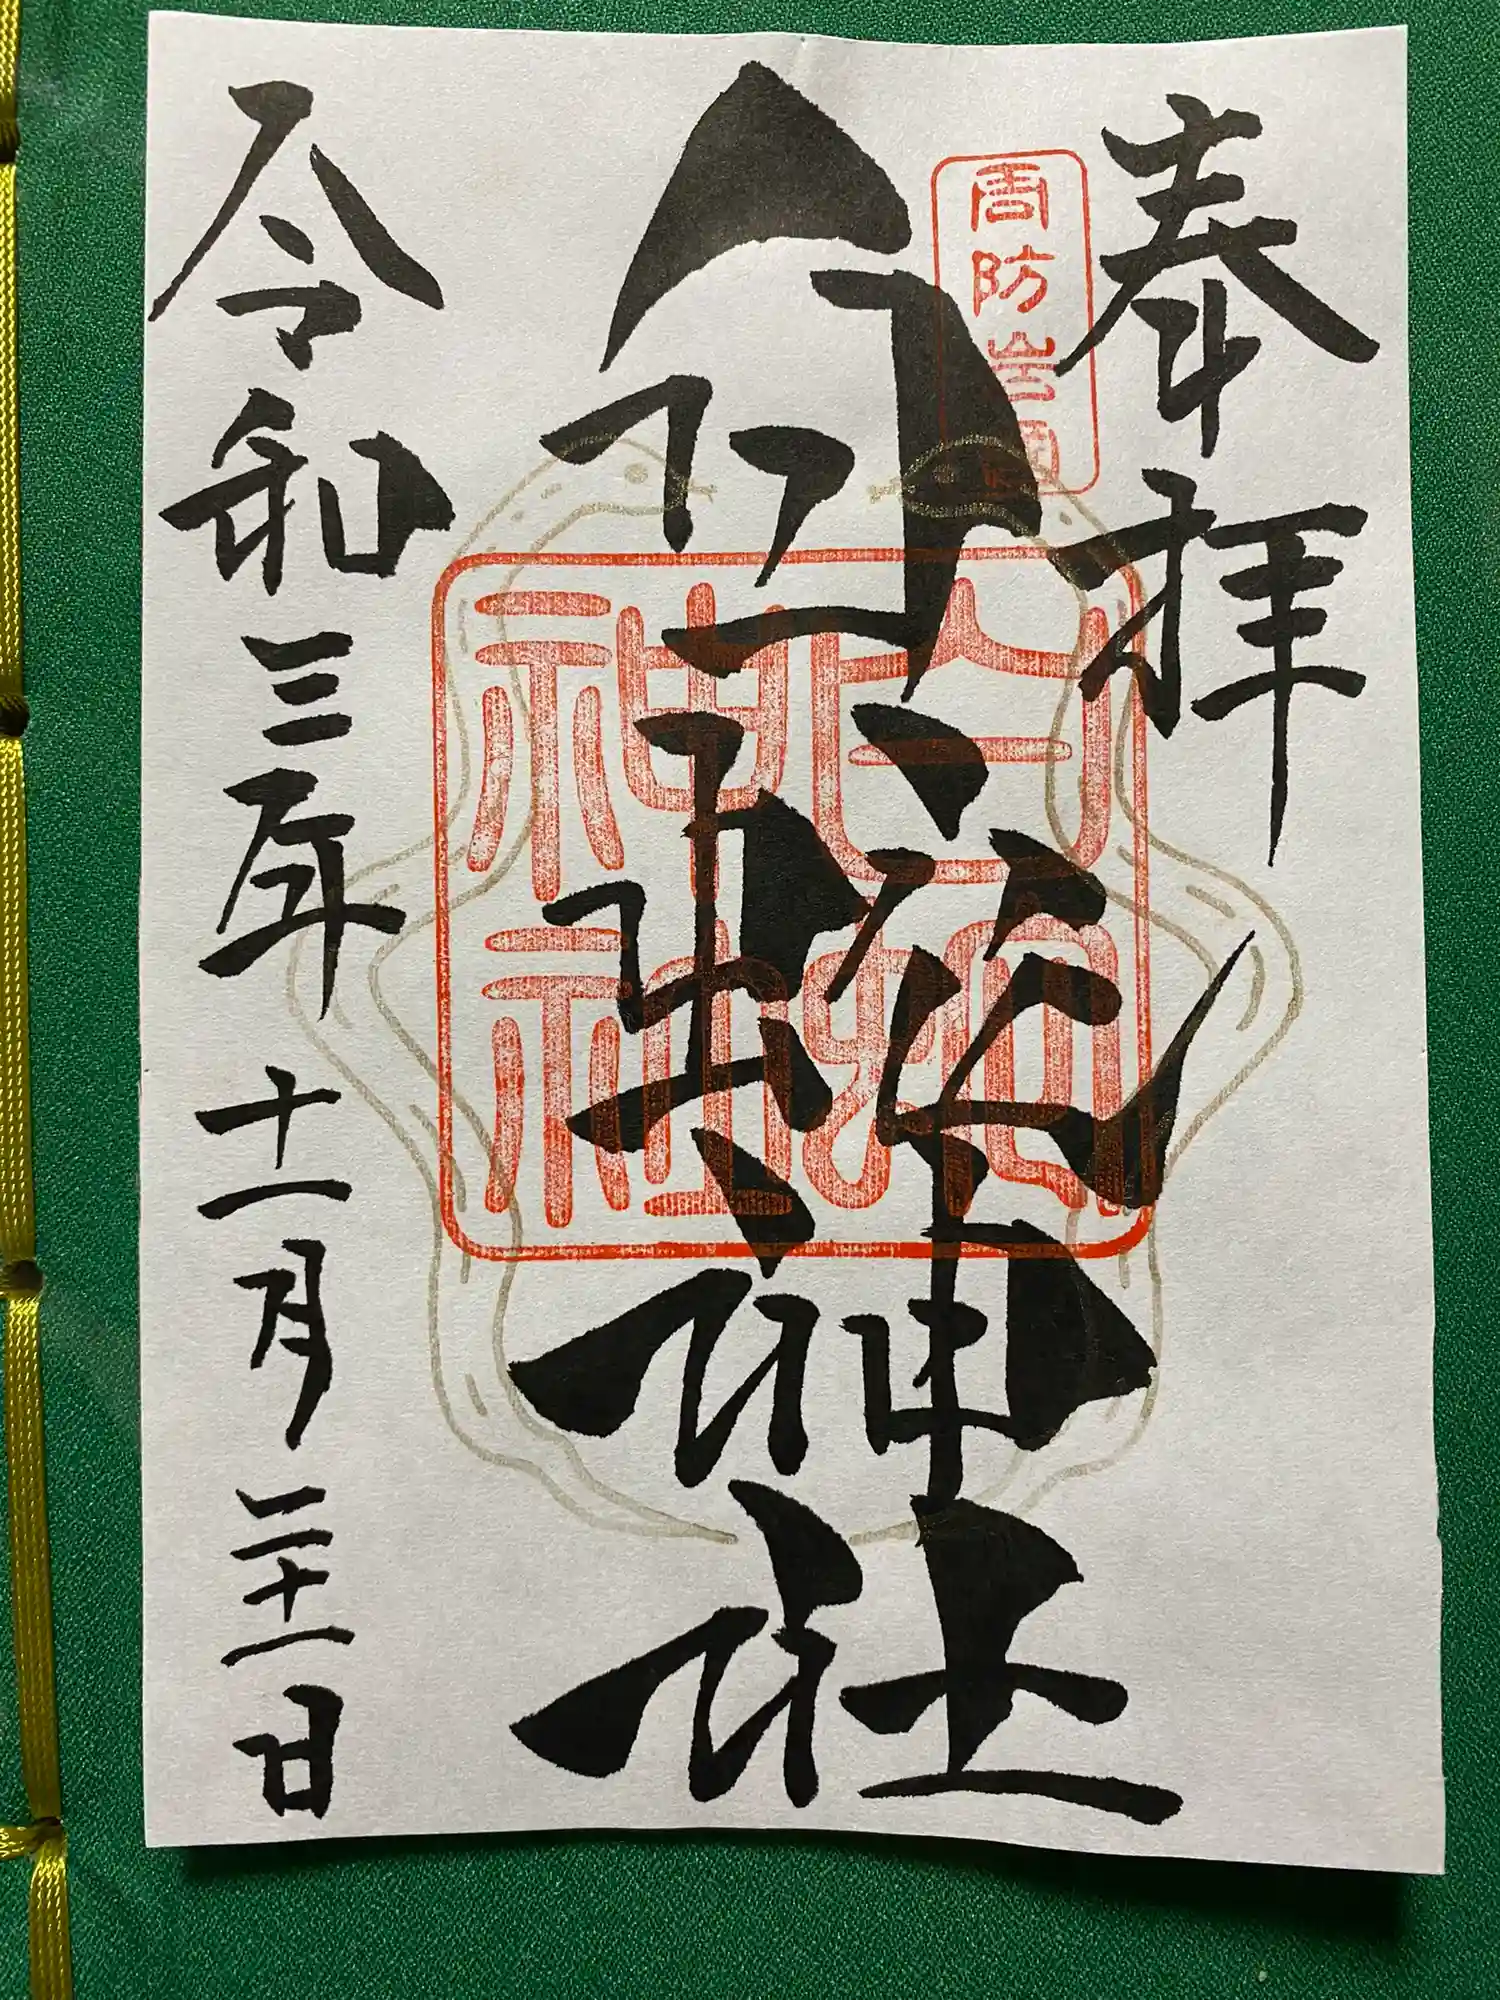 奉拝
周防岩国
白蛇神社
白蛇神社
令和三年十一月二十一日